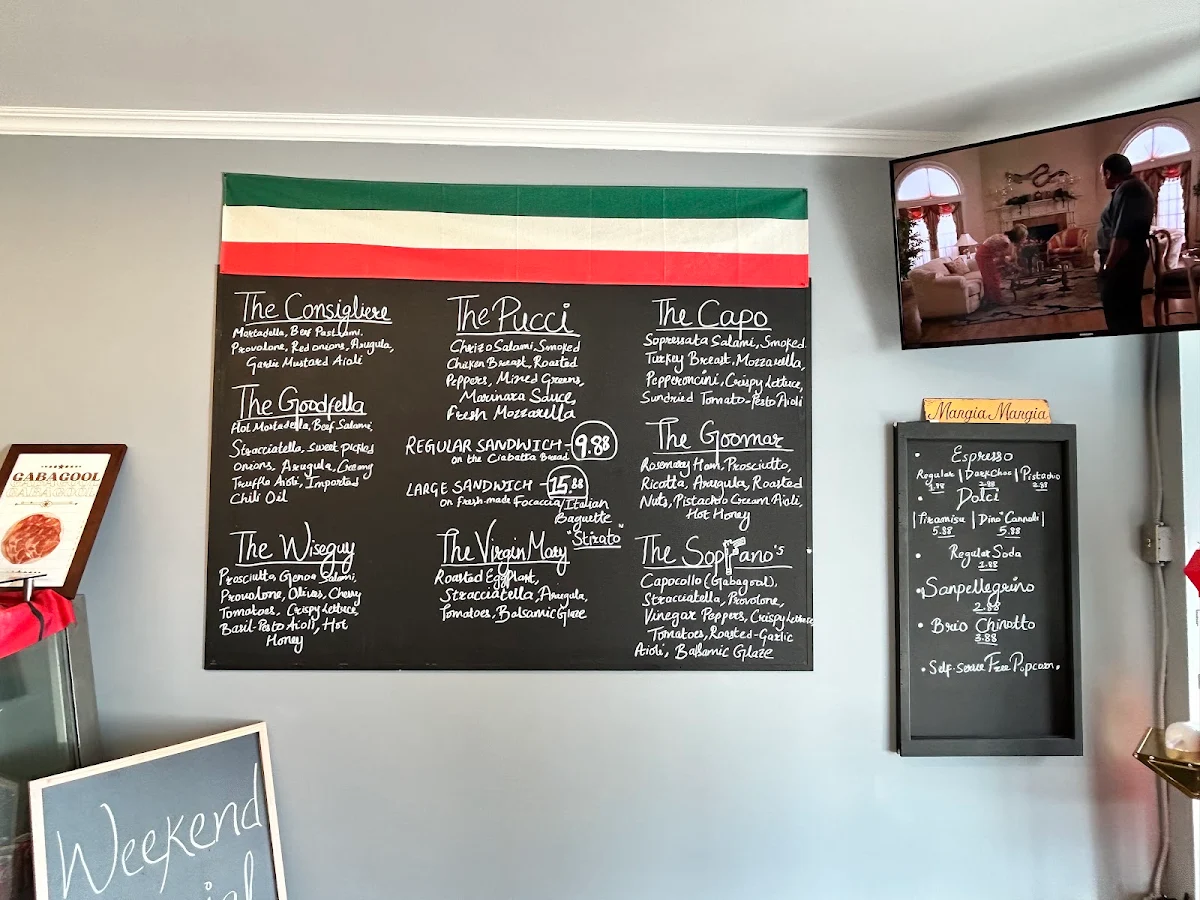 The Consigliere
Mortadella, Beef Pastrami,
Provolone, Red onions, Arugula,
Garlic Mustard Aioli
The Goodfella
Hot Mortadella, Beef Salami,
Stracciatella, Sweet pickles
onions, Arugula, Creamy
Truffle Aioli, Imported
Chili Oil
The Wiseguy
Prosciutto, Genoa Salami,
Provolone, Olives, Cherry
Tomatoes, Crispy Lettuce,
Basil-Pesto Aioli, Hot
Honey
The Pucci
Chrizo Salami, Smoked
Chicken Breast, Roasted
Peppers, Mixed Greens,
Marinara Sauce,
Fresh Mozzarella
REGULAR SANDWICH - 9.88
on the Ciabatta Bread
LARGE SANDWICH - 15.88
on Fresh-made Focaccia/Italian
Baguette
"Stirato"
The Virgin Mary
Roasted Eggplant,
Stracciatella, Arugula,
Tomatoes, Balsamic Glaze
The Capo
Sopressata Salami, Smoked
Turkey Breast, Mozzarella,
Pepperoncini, Crispy Lettuce,
Sundried Tomato-Pesto Aioli
The Goomar
Rosemary Ham, Prosciutto,
Ricotta, Arugula, Roasted
Nuts, Pistachio Cream Aioli,
Hot Honey
The Soprano's
Capocollo (Gabagool),
Stracciatella, Provolone,
Vinegar Peppers, Crispy Lettuce
Tomatoes, Roasted-Garlic
Aioli, Balsamic Glaze
Mangia Mangia
• Espresso
Regular | Dark Choc | Pistachio
1.88 2.88 2.88
• Dolci
| Tiramisu | Dino's Cannoli |
5.88 5.88
• Regular Soda
1.88
• Sanpellegrino
2.88
• Brio Chinotto
3.88
• Self-serve Free Popcorn.
GABAGOOL
GABAGOOL
Weekend